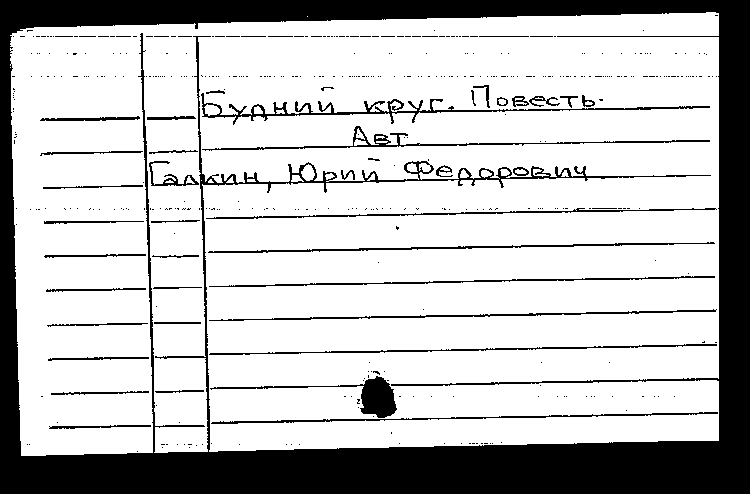 Будний круг. Повесть.
Авт
Галкин, Юрий Федорович